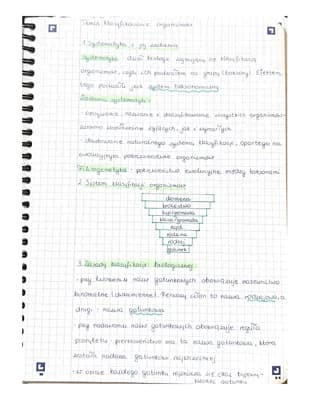 Temat: Klasyfikowanie organizmów
1. Systematyka i jej zadania
Systematyka - dział biologii zajmujący się klasyfikacją
organizmów, czyli ich podziałem na grupy (taksony). Efektem
tego podziału jest system taksonomiczny
Zadania systematyki:
- opisywanie, nazywanie i sklasyfikowanie wszystkich organizmów
zarówno współcześnie żyjących, jak i wymarłych
- zbudowanie naturalnego systemu klasyfikacji, opartego na
ewolucyjnym pokrewieństwie organizmów
Filogenetyka - pokrewieństwo ewolucyjne między taksonami
2. System klasyfikacji organizmów
domena
królestwo
typ/gromada
klasa/gromada
rząd
rodzina
rodzaj
gatunek
3. Zasady klasyfikacji biologicznej:
- przy tworzeniu nazw gatunkowych obowiązuje nazewnictwo
binominalne (dwuimienne). Pierwszy człon to nazwa rodzajowa, a
drugi - nazwa gatunkowa
- przy nadawaniu nazw gatunkowych obowiązuje reguła
priorytetu - pierwszeństwo ma ta nazwa gatunkowa, która
została nadana gatunkowi najwcześniej
- w opisie każdego gatunku